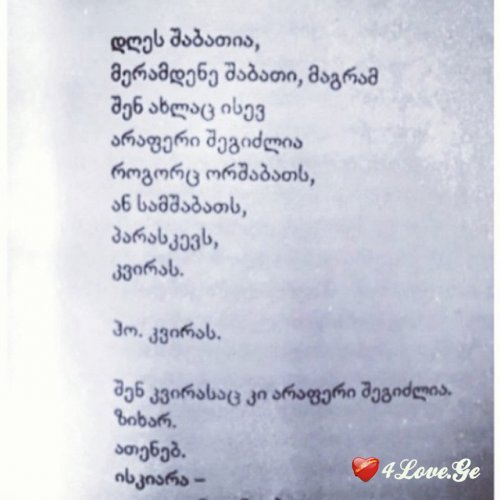 დღეს შაბათია,
მერამდენე შაბათი, მაგრამ
შენ ახლაც ისევ
არაფერი შეგიძლია
როგორც ორშაბათს,
ან სამშაბათს,
პარასკევს,
კვირას.
ჰო. კვირას.
შენ კვირასაც კი არაფერი შეგიძლია.
ზიხარ.
ათენებ.
ისკიარა –
4Love.Ge